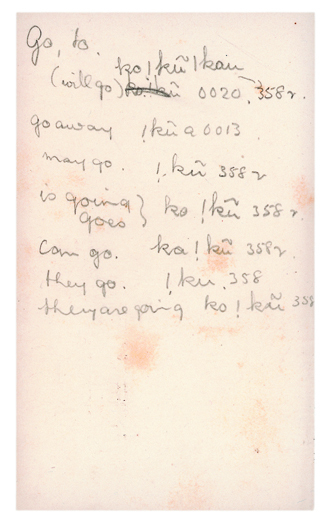 Go, to.
ko!kũ!kau
(will go) ko!kũ 0020, 358r.
go away !kũ a 0013
may go. !kũ 358r
is going } ko !kũ 358r.
goes
can go. ka!kũ 358r.
they go. !ku. 358
they are going ko!kũ 358